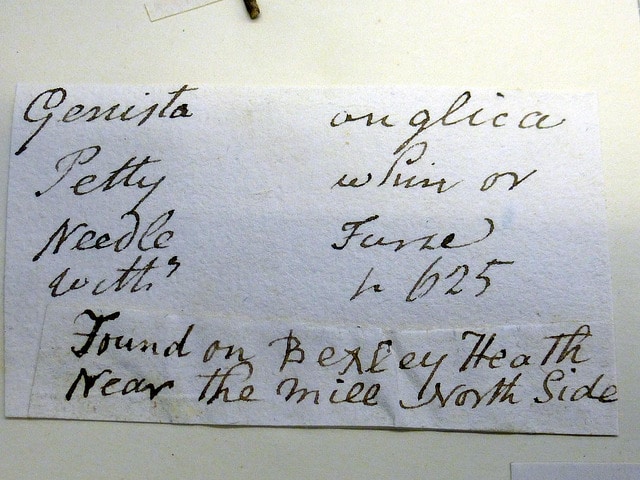 Genista anglica
Petty whin or
Needle Furze
With^s p 625
Found on Bexley Heath
Near the mill North Side